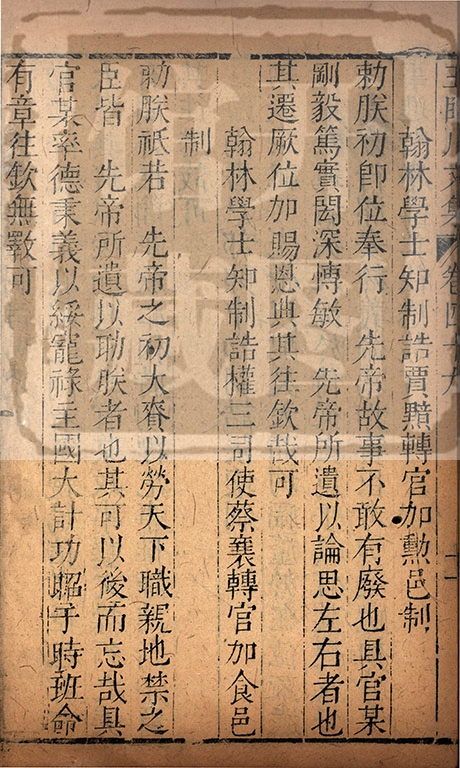 王臨川文集 卷四十九
翰林學士知制誥賈黯轉官加勲邑制
勑朕初卽位奉行 先帝故事不敢有廢也具官某
剛毅篤實閎深愽敏 先帝所遺以論思左右者也
其遷厥位加賜恩典其往欽哉可
翰林學士知制誥權三司使蔡襄轉官加食邑
制
勑朕祗若 先帝之初大賚以勞天下職親地禁之
臣皆 先帝所遺以助朕者也其可以後而忘哉具
官某率德秉義以綏寵祿主國大計功昭于時班命
有章往欽無斁可